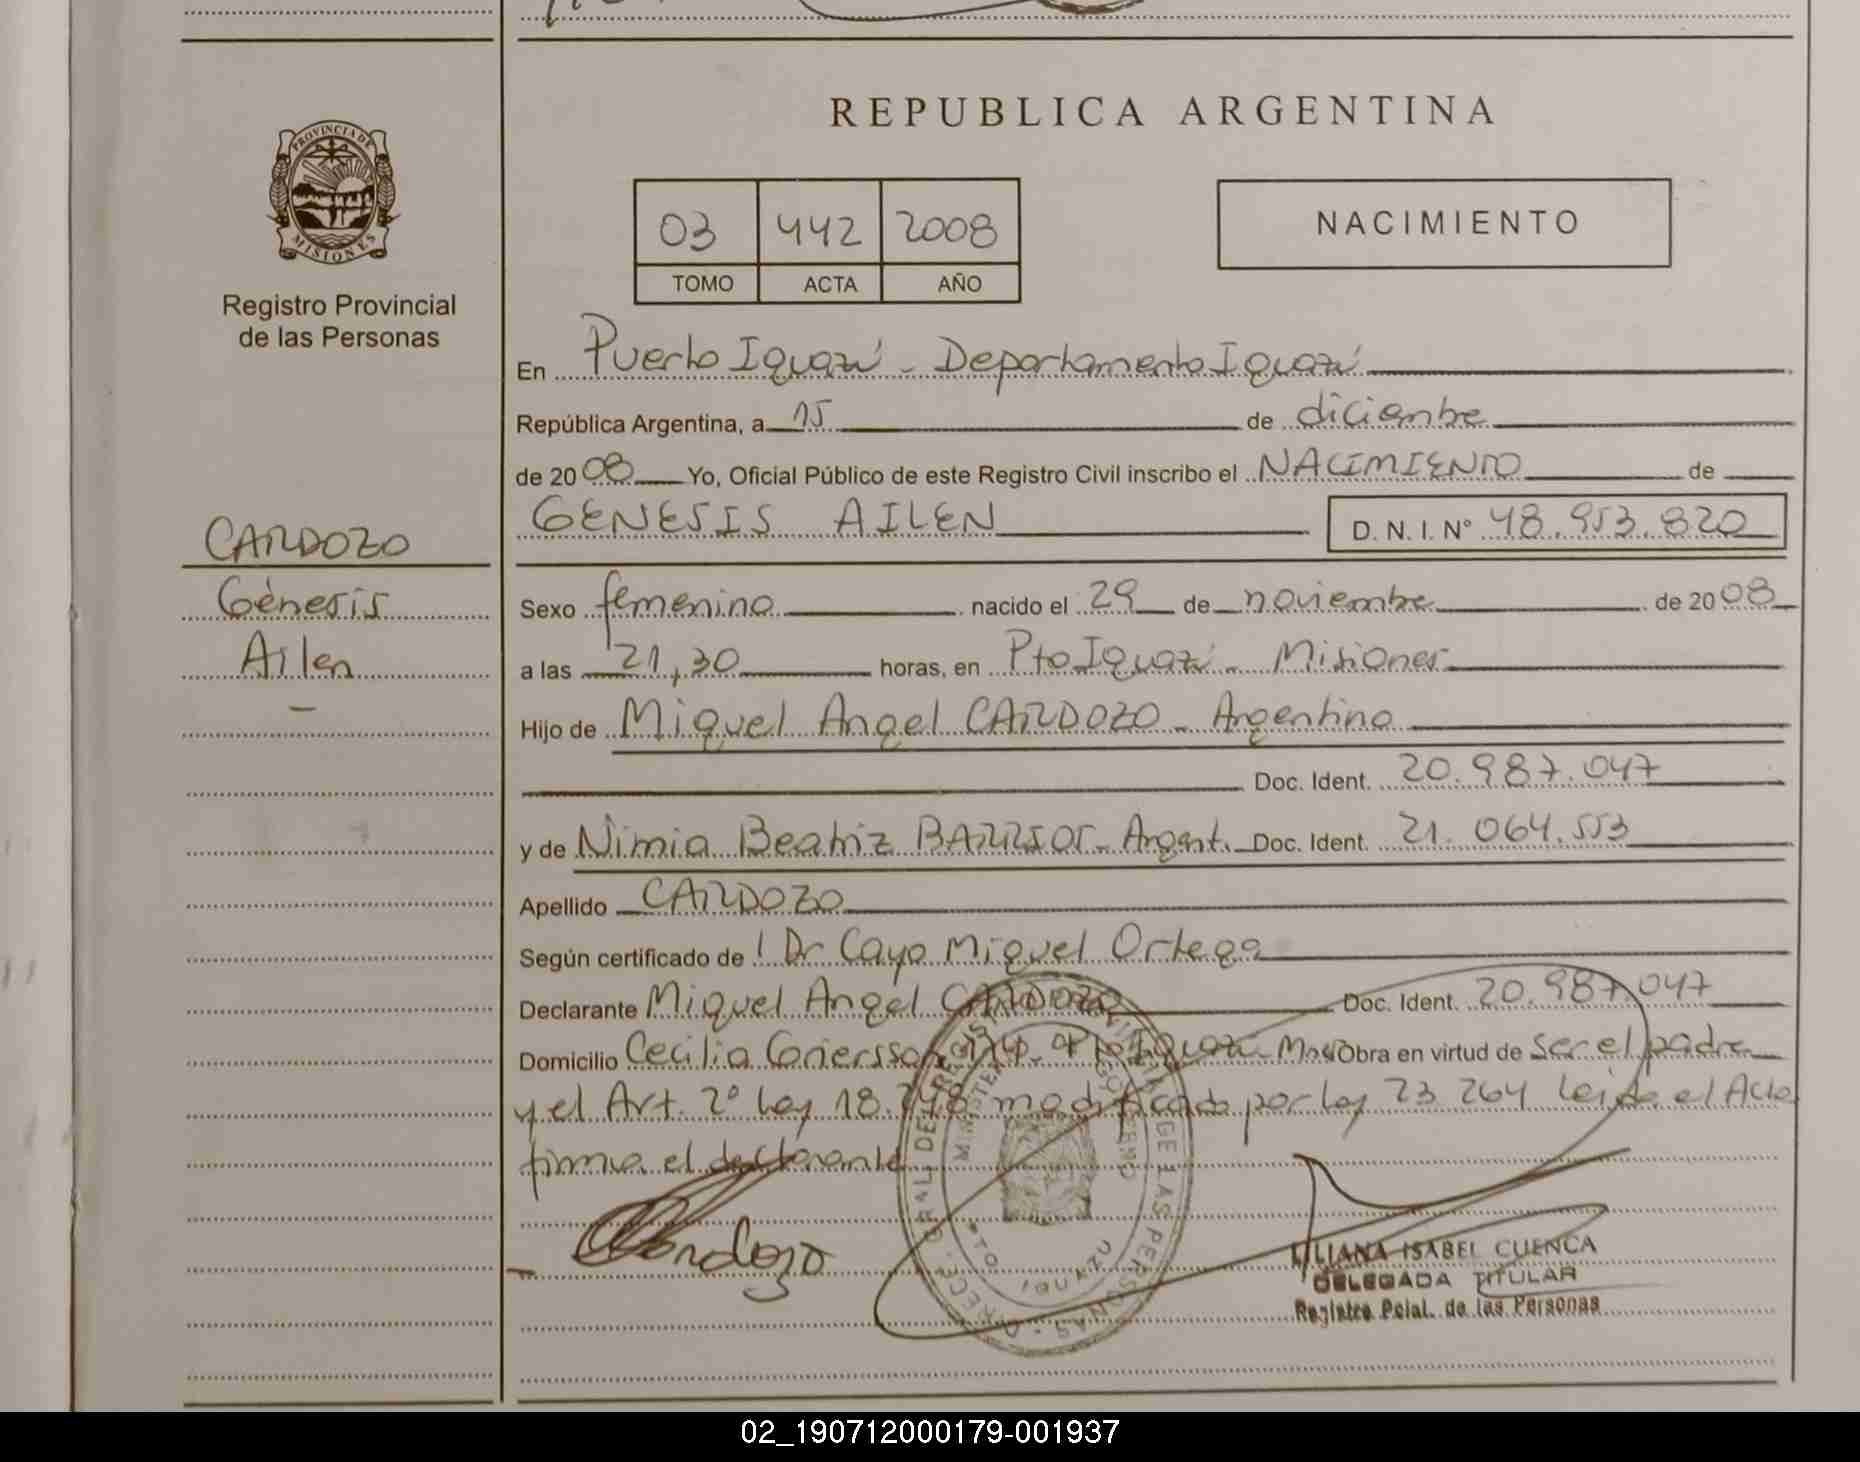 REPUBLICA ARGENTINA
PROVINCIA DE
MISIONES
Registro Provincial
de las Personas
03 442 2008
TOMO ACTA AÑO
NACIMIENTO
En Puerto Iguazú - Departamento Iguazú
República Argentina, a 15 de diciembre
de 2008 Yo, Oficial Público de este Registro Civil inscribo el NACIMIENTO de
GENESIS AILEN D. N. I. Nº 48.953.820
CARDOZO
Génesis
Ailen
Sexo femenino nacido el 29 de noviembre de 2008
a las 21,30 horas, en Pto Iguazú - Misiones
Hijo de Miguel Angel CARDOZO - Argentino
Doc. Ident. 20.987.047
y de Nimia Beatriz BARRIOS - Argent. Doc. Ident. 21.064.553
Apellido CARDOZO
Según certificado de Dr Cayo Miguel Ortega
Declarante Miguel Angel CARDOZO Doc. Ident. 20.987.047
Domicilio Cecilia Pto Iguazú Obra en virtud de ser el padre
y el Art. 2º Ley 18.248 modificado por Ley 23 264 leida el Acta
firma el declarante
Cardozo
LILIANA ISABEL CUENCA
DELEGADA TITULAR
Registro Pcial. de las Personas
02_190712000179-001937